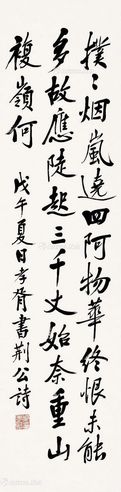 撲〻烟嵐遶四阿物華終恨未能
多故應陡起三千丈始奈重山
複嶺何
戊午夏日孝胥書荆公詩